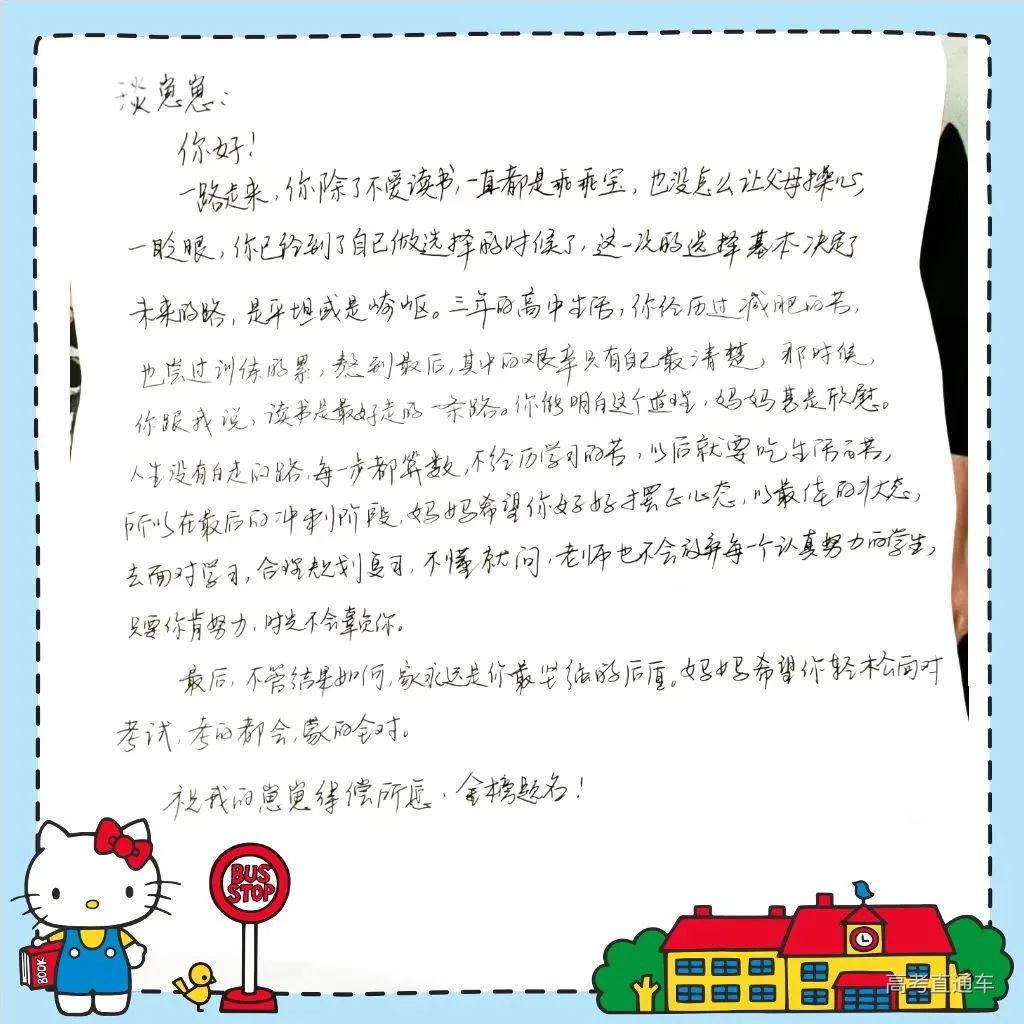 琰崽崽：
你好！
一路走来，你除了不爱读书，一直都是乖乖宝，也没怎么让父母操心，
一眨眼，你已经到了自己做选择的时候了，这一次的选择基本决定了
未来的路，是平坦或是崎岖。三年的高中生活，你经历过减肥的苦，
也尝过训练的累，熬到最后，其中的艰辛只有自己最清楚，那时候，
你跟我说，读书是最好走的一条路。你能明白这个道理，妈妈甚是欣慰。
人生没有白走的路，每一步都算数，不经历学习的苦，以后就要吃生活的苦，
所以在最后的冲刺阶段，妈妈希望你好好摆正心态，以最佳的状态，
去面对学习，合理规划复习，不懂就问，老师也不会放弃每一个认真努力的学生，
只要你肯努力，时光不会辜负你。
最后，不管结果如何，家永远是你最坚强的后盾。妈妈希望你轻松面对
考试，考的都会，蒙的全对。
祝我的崽崽得偿所愿，金榜题名！
BUS
STOP
BOOK
高考直通车